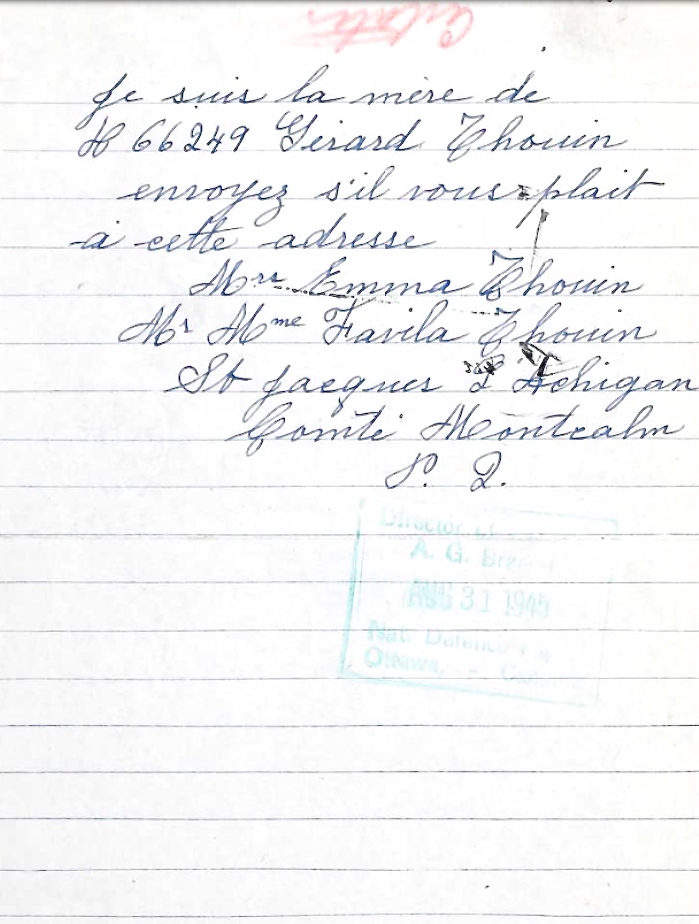 Je suis la mère de
H 66249 Gérard Thouin
envoyez s'il vous plait
à cette adresse
Mrs Emma Thouin
Mr Mme Favila Thouin
St Jacques L Achigan
Comté Montcalm
P. Q.
Director of
A. G. Bra
AUG 31 1945
Nat. Defence
Ottawa, - Can